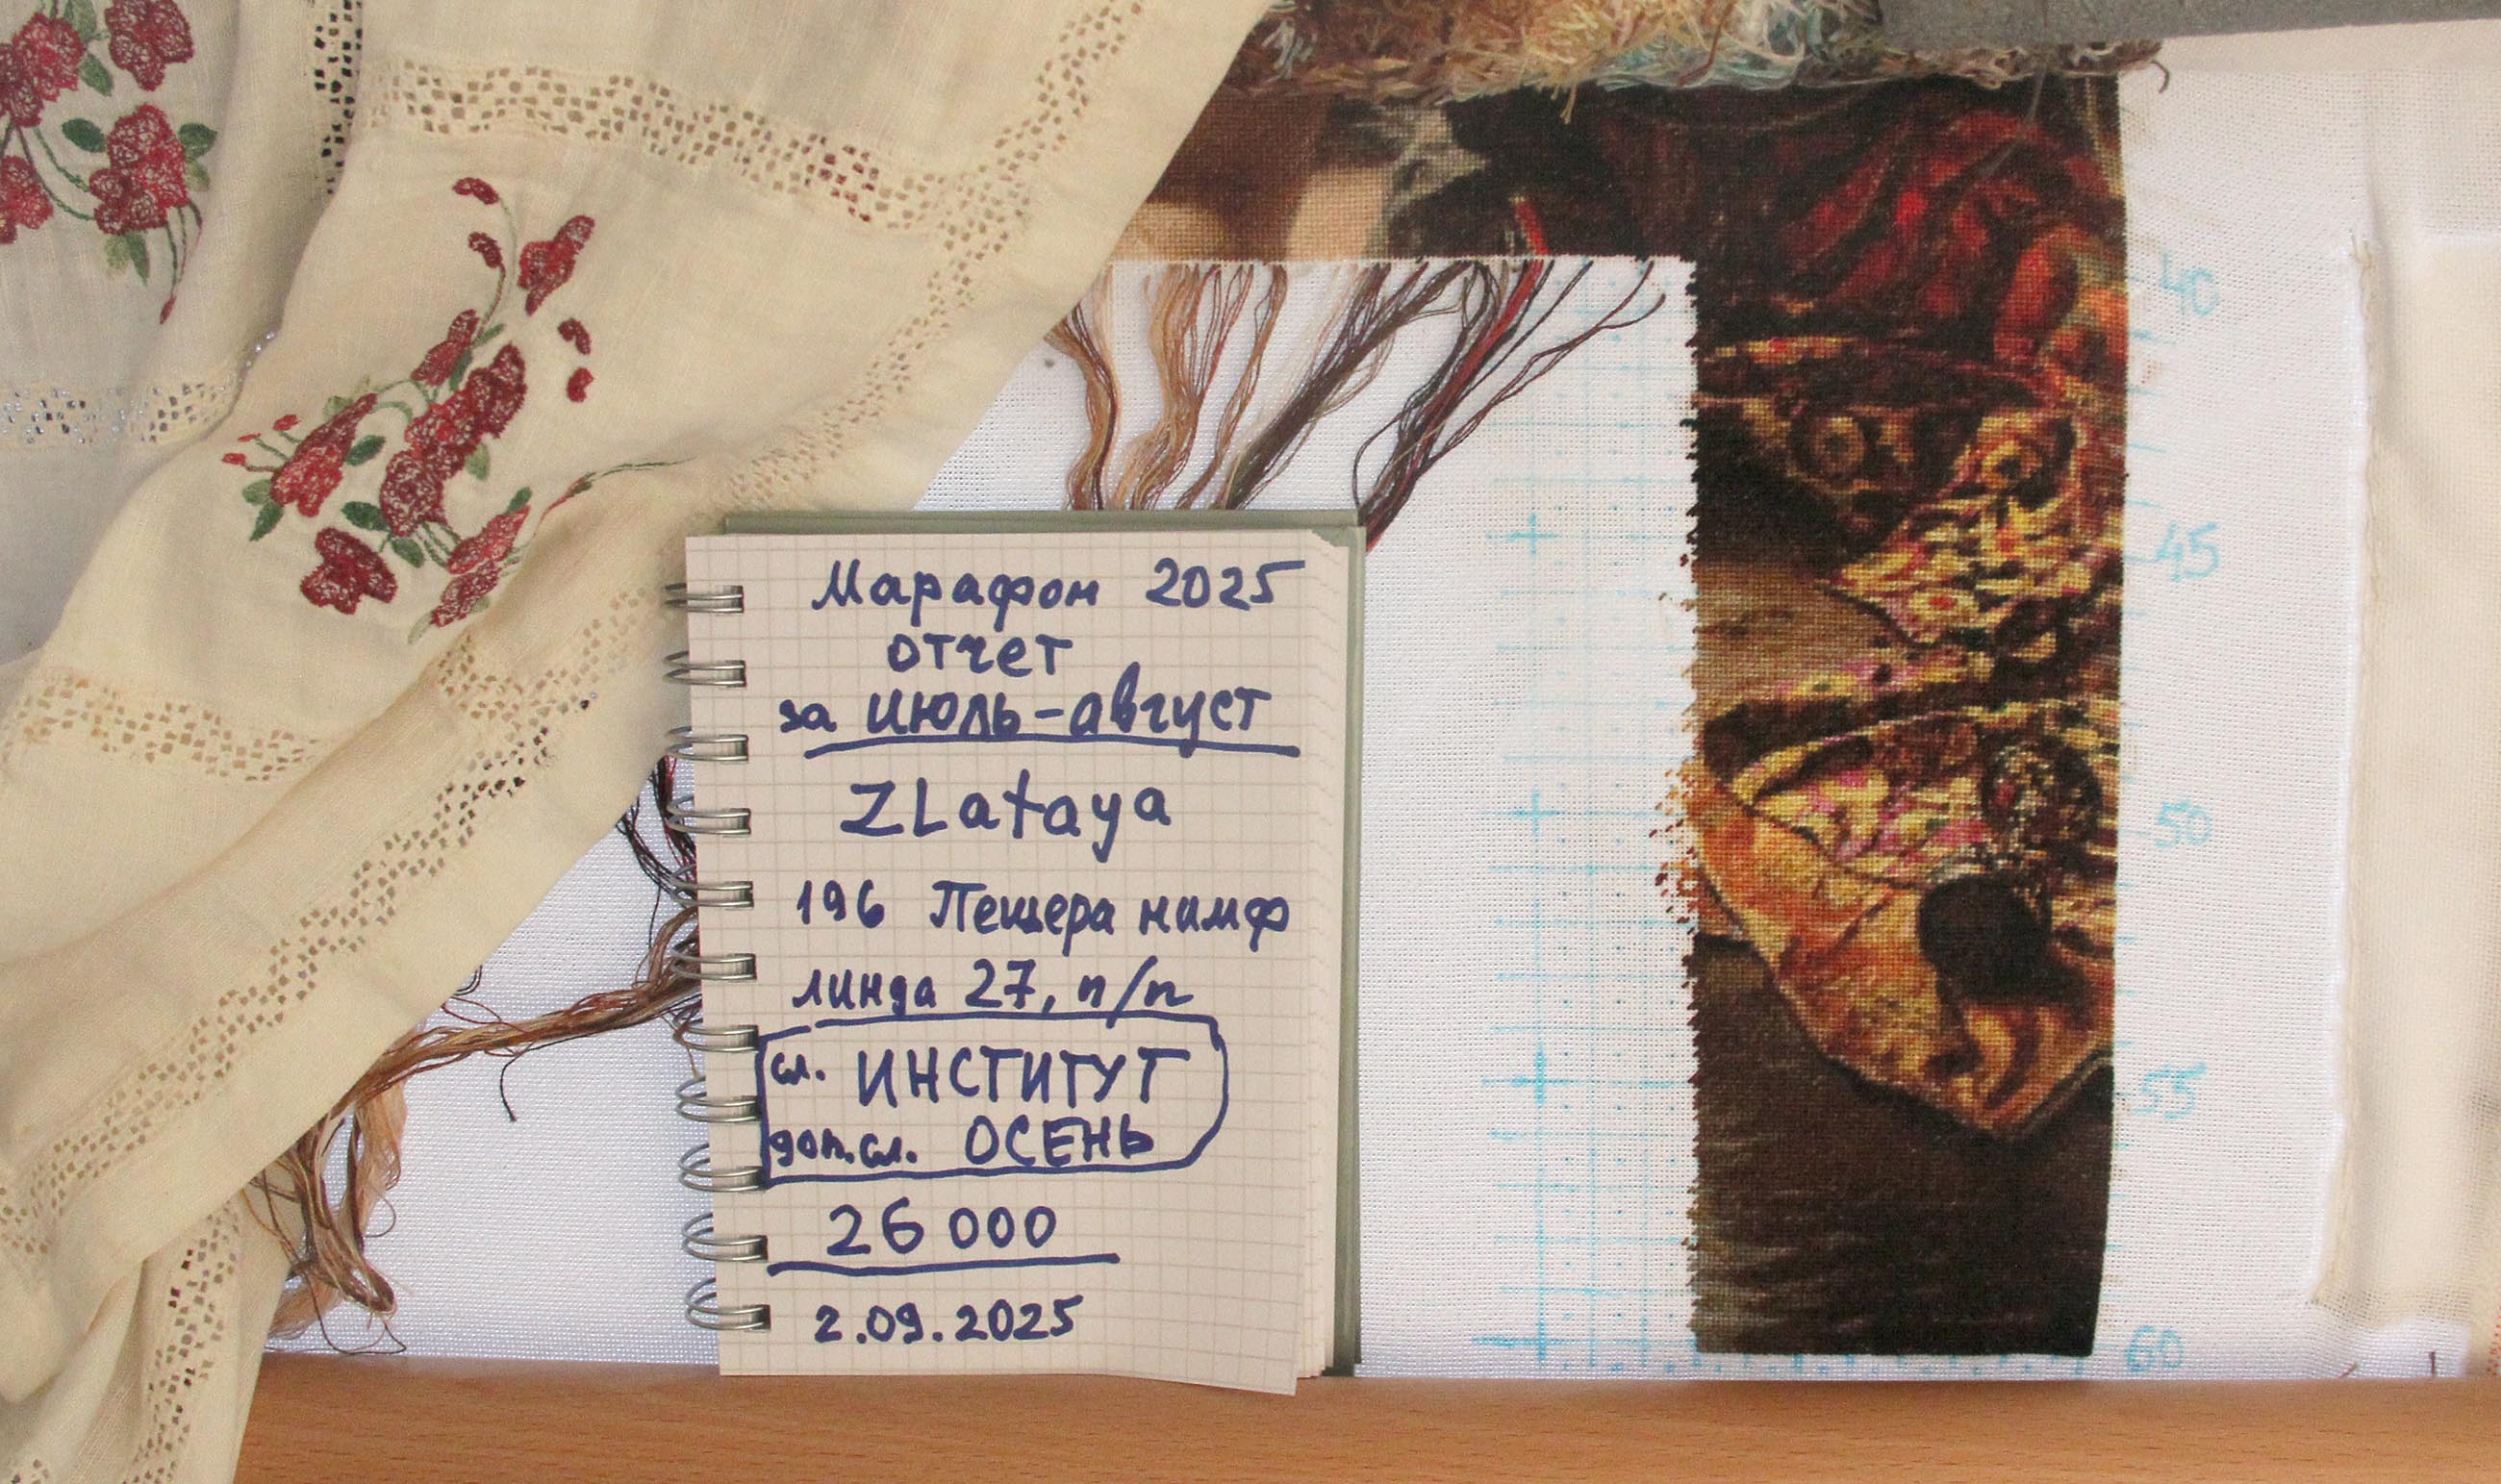 Марафон 2025
отчет
за июль-август
ZLataya
196 Пещера нимф
линда 27, п/п
сл. ИНСТИТУТ
доп.сл. ОСЕНЬ
26 000
2.09.2025
40
45
50
55
60